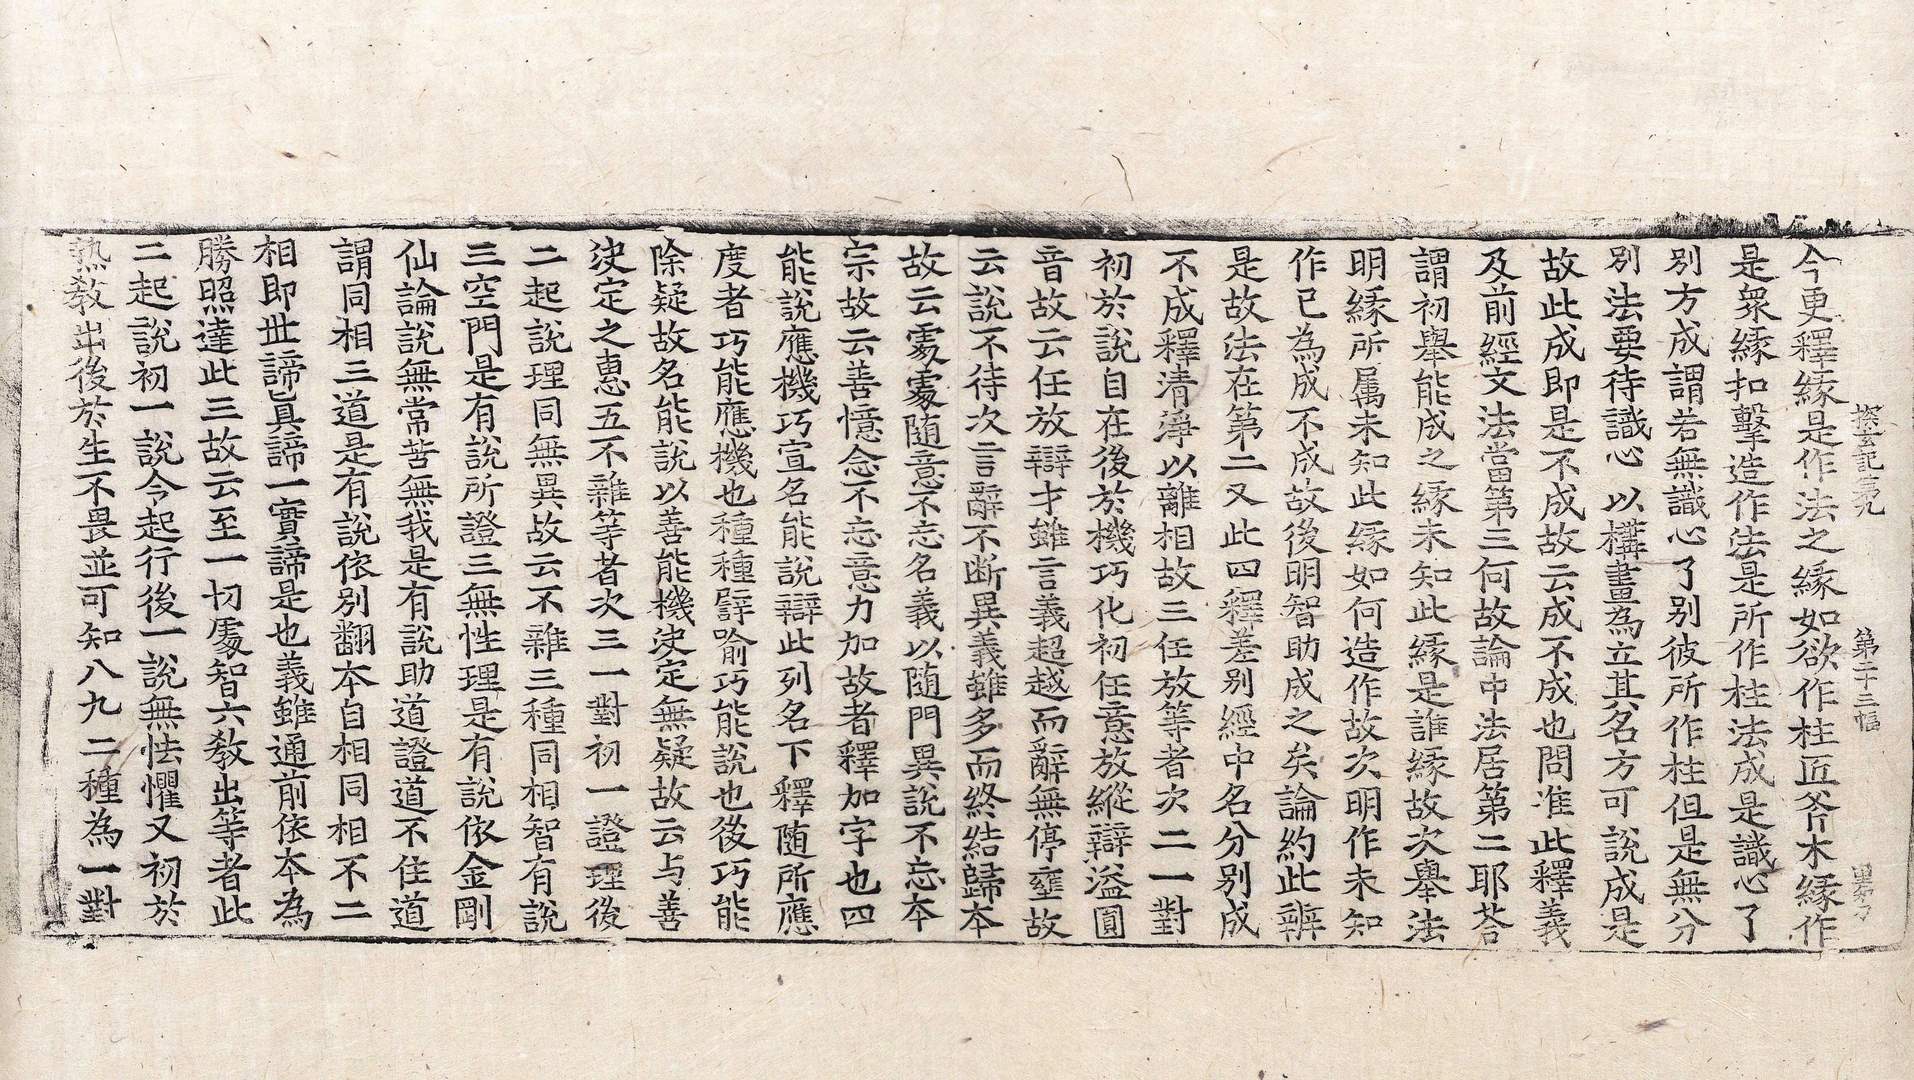 探玄記第九　第二十三幅
今更釋緣是作法之緣如欲作柱匠斧木緣作
是衆緣扣擊造作法是所作柱法成是識心了
別方成謂若無識心了別彼所作柱但是無分
別法要待識心以構畫為立其名方可說成是
故此成即是不成故云成不成也問准此釋義
及前經文法當第三何故論中法居第二耶荅
謂初舉能成之緣未知此緣是誰緣故次舉法
明緣所属未知此緣如何造作故次明作未知
作已為成不成故後明智助成之矣論約此辨
是故法在第二又此四釋差別經中名分別成
不成釋清淨以離相故三任放等者次二一對
初於說自在後於機巧化初任意放縱辯溢圓
音故云任放辯才雖言義超越而辭無停壅故
云說不待次言辭不断異義雖多而終結歸本
故云䖏䖏随意不忘名義以随門異說不忘本
宗故云善憶念不忘意力加故者釋加字也四
能說應機巧宣名能說辯此列名下釋随所應
度者巧能應機也種種譬喻巧能說也後巧能
除疑故名能說以善能機決定無疑故云与善
決定之恵五不雜等者次三一對初一證理後
二起說理同無異故云不雜三種同相智有說
三空門是有說所證三無性理是有說依金剛
仙論說無常苦無我是有說助道證道不住道
謂同相三道是有說依別翻本自相同相不二
相即世諦真諦一實諦是也義雖通前依本為
勝照達此三故云至一切䖏智六教出等者此
二起說初一說今起行後一說無怯懼又初於
熟教出後於生不畏並可知八九二種為一對